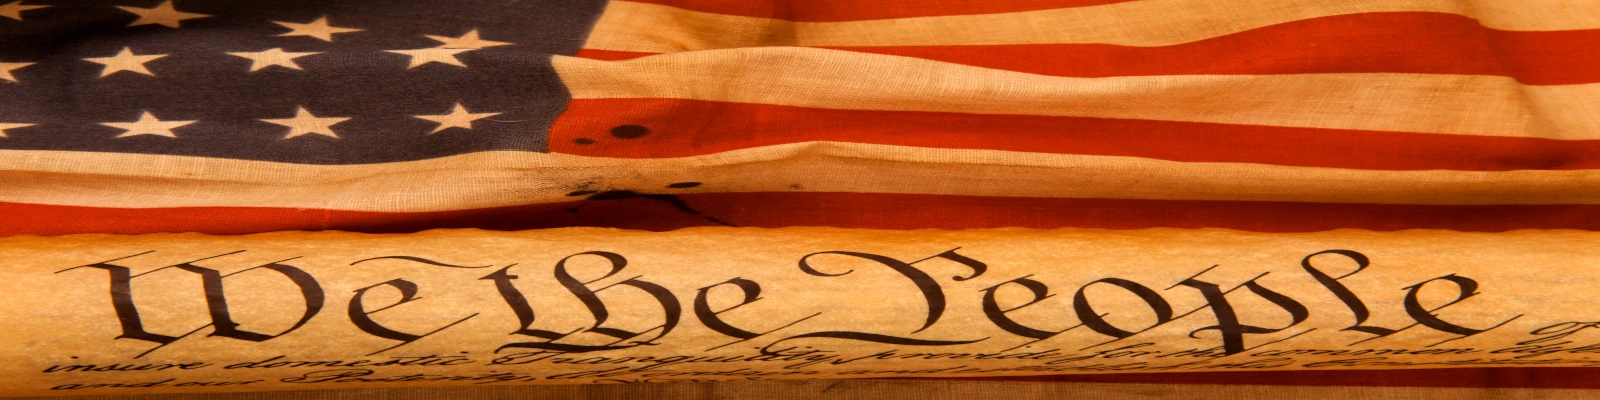 We the People
insure domestic Tranquility, provide for the common
and our Posterity,